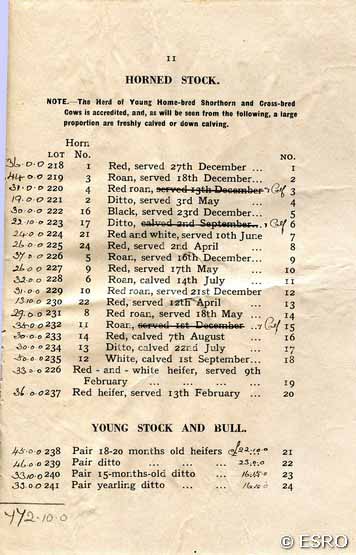 11
HORNED STOCK.
NOTE.—The Herd of Young Home-bred Shorthorn and Cross-bred
Cows is accredited, and, as will be seen from the following, a large
proportion are freshly calved or down calving.
Horn
LOT No. NO.
36.0.0 218 1 Red, served 27th December ... 1
44.0.0 219 3 Roan, served 18th December ... 2
31.0.0 220 4 Red roan, served 13th December & Calf 3
19.0.0 221 2 Ditto, served 3rd May ... 4
30.0.0 222 16 Black, served 23rd December ... 5
223 17 Ditto, calved 2nd September... & Calf 6
24.0.0 224 21 Red and white, served 10th June 7
26.0.0 225 24 Red, served 2nd April ... 8
226 5 Roan, served 16th December ... 9
26.0.0 227 9 Red, served 17th May ... 10
32.0.0 228 6 Roan, calved 14th July ... 11
31.0.0 229 10 Red roan, served 21st December 12
230 22 Red, served 12th April ... 13
29.0.0 231 8 Red roan, served 18th May ... 14
232 11 Roan, served 1st December ... & Calf 15
30.0.0 233 14 Red, calved 7th August ... 16
30.0.0 234 13 Ditto, calved 22nd July ... 17
30.0.0 235 12 White, calved 1st September... 18
33.0.0 226 Red-and-white heifer, served 9th
February ... ... ... ... 19
36.0.0 237 Red heifer, served 13th February ... 20
YOUNG STOCK AND BULL.
45.0.0 238 Pair 18-20 months old heifers 22.10.0 21
46.0.0 239 Pair ditto ... ... ... 23.0.0 22
33.10.0 240 Pair 15-months-old ditto ... 16.15.0 23
33.0.0 241 Pair yearling ditto ... ... 16.10.0 24
772-10-0
© ESRO